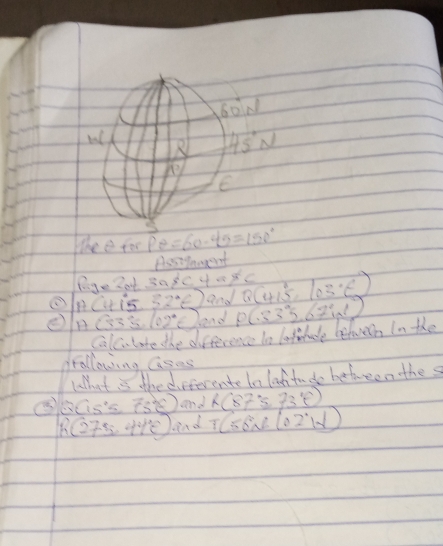 N
60°N
W
45°N
R
P
E
S
The θ for PR = 60-45 = 150°
Assignment
Page 301 3a&c 4a&c
A (41°S 32°E) and Q(41°S, 103°E)
A (33°S, 102°E) and P(33°S 67°W)
Calculate the difference in latitude between in the
following cases
What is the difference in latitude between the
Q(15°S 73°E) and R(87°S 73°E)
R(37°S, 44°E) and T(56°N 102°W)